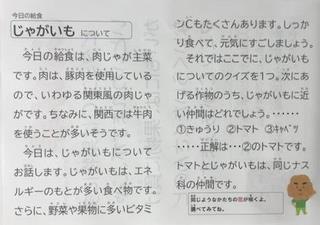 今日の給食
じゃがいも について
今日の給食は、肉じゃが主菜
です。肉は、豚肉を使用している
ので、いわゆる関東風の肉じゃ
がです。ちなみに、関西では牛肉
を使うことが多いそうです。
今日は、じゃがいもについて
お話します。じゃがいもは、エネ
ルギーのもとが多い食べ物です。
さらに、野菜や果物に多いビタミ
ンCもたくさんあります。しっか
り食べて、元気にすごしましょう。
それではここで、じゃがいも
についてのクイズを1つ。次にあ
げる作物のうち、じゃがいもに近
い仲間はどれでしょう。‥‥‥
①きゅうり ②トマト ③キャベツ
‥‥‥正解は…②のトマトです。
トマトとじゃがいもは、同じナス
科の仲間です。
同じようなかたちの花が咲くよ。
調べてみてね。